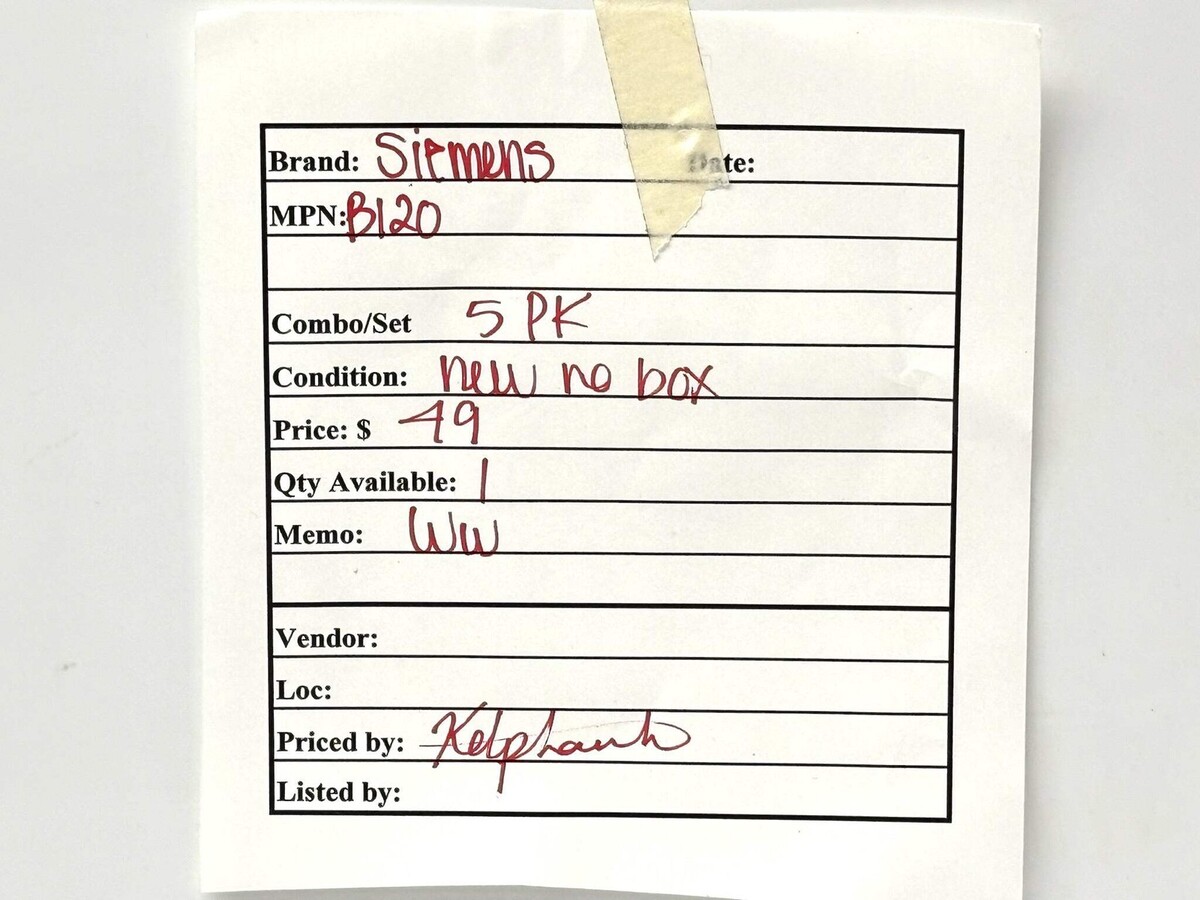 Brand: Siemens Date:
MPN: B120
Combo/Set 5 PK
Condition: new no box
Price: $ 49
Qty Available: 1
Memo: WW
Vendor:
Loc:
Priced by:
Listed by: